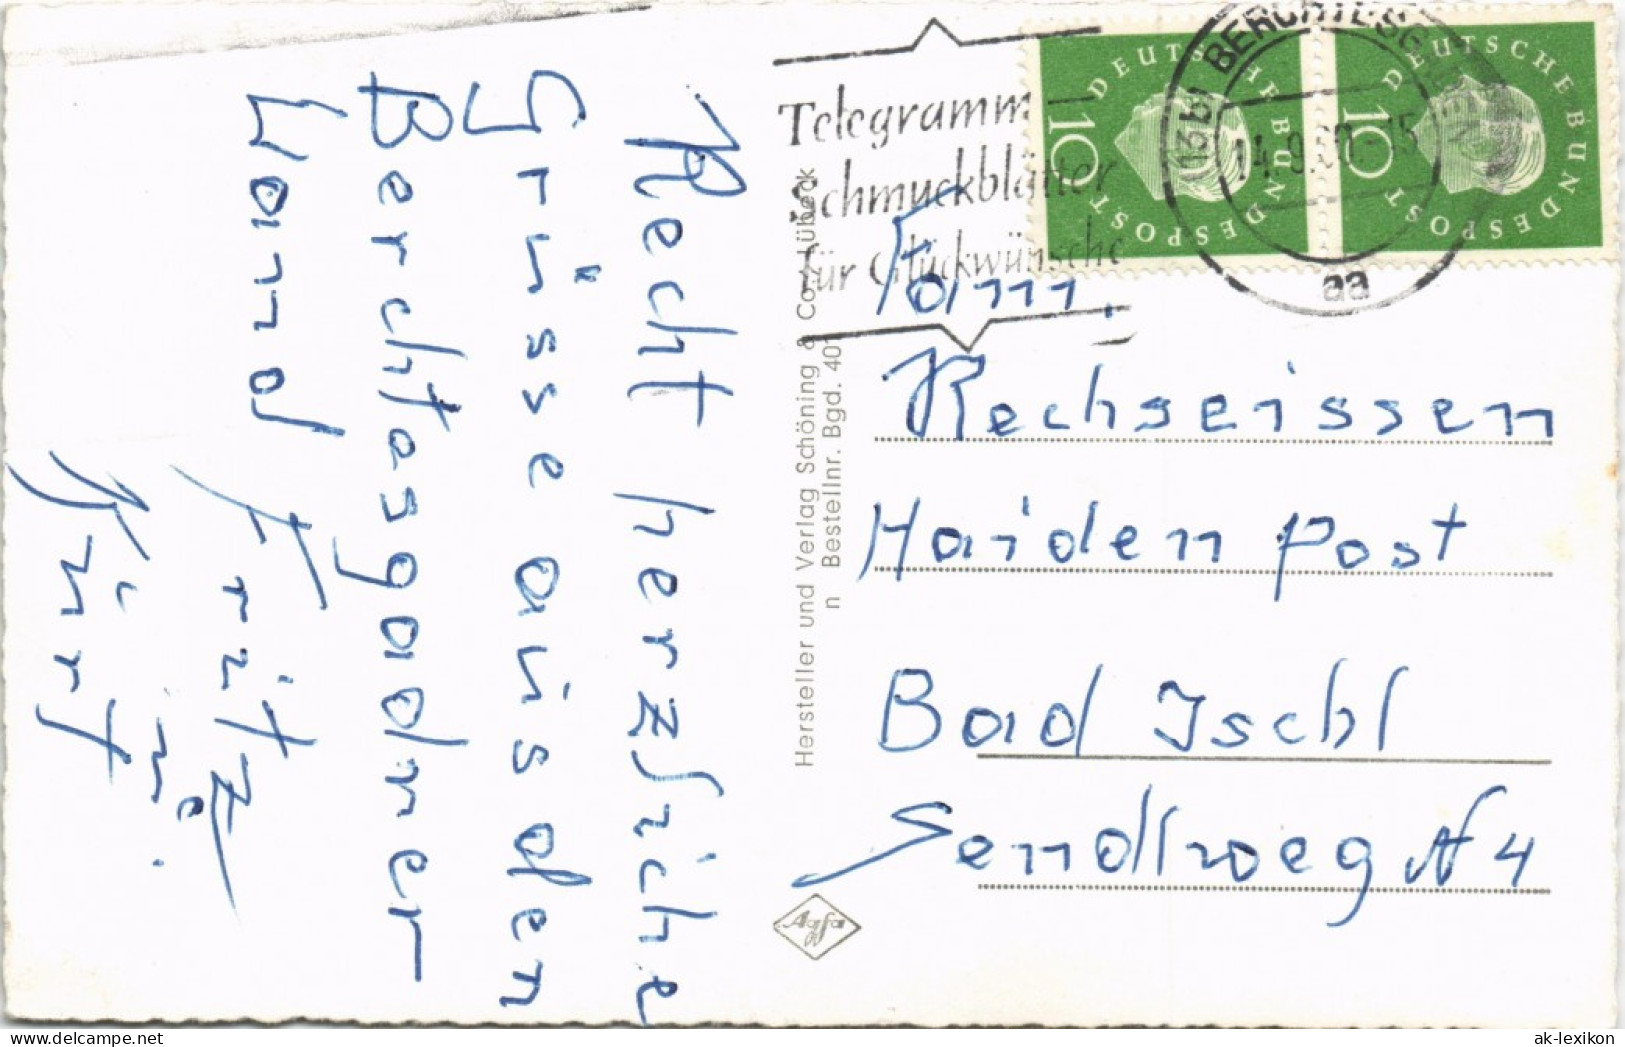 Recht herzliche
Grüsse aus den
Berchtesgadner
Land
Fritz
Kurt
Telegramm
Schmuckblätter
für Glückwünsche
DEUTSCHE BUNDESPOST
10
DEUTSCHE BUNDESPOST
10
(13b) BERCHTESGADEN
14.9.60.-15
aa
Hersteller und Verlag Schöning & Co., Lübeck
n Bestellnr. Bgd. 401
Fam.
Rechseissen
Haiden Post
Bad Ischl
Sendlweg N 4
Agfa
ak-lexikon